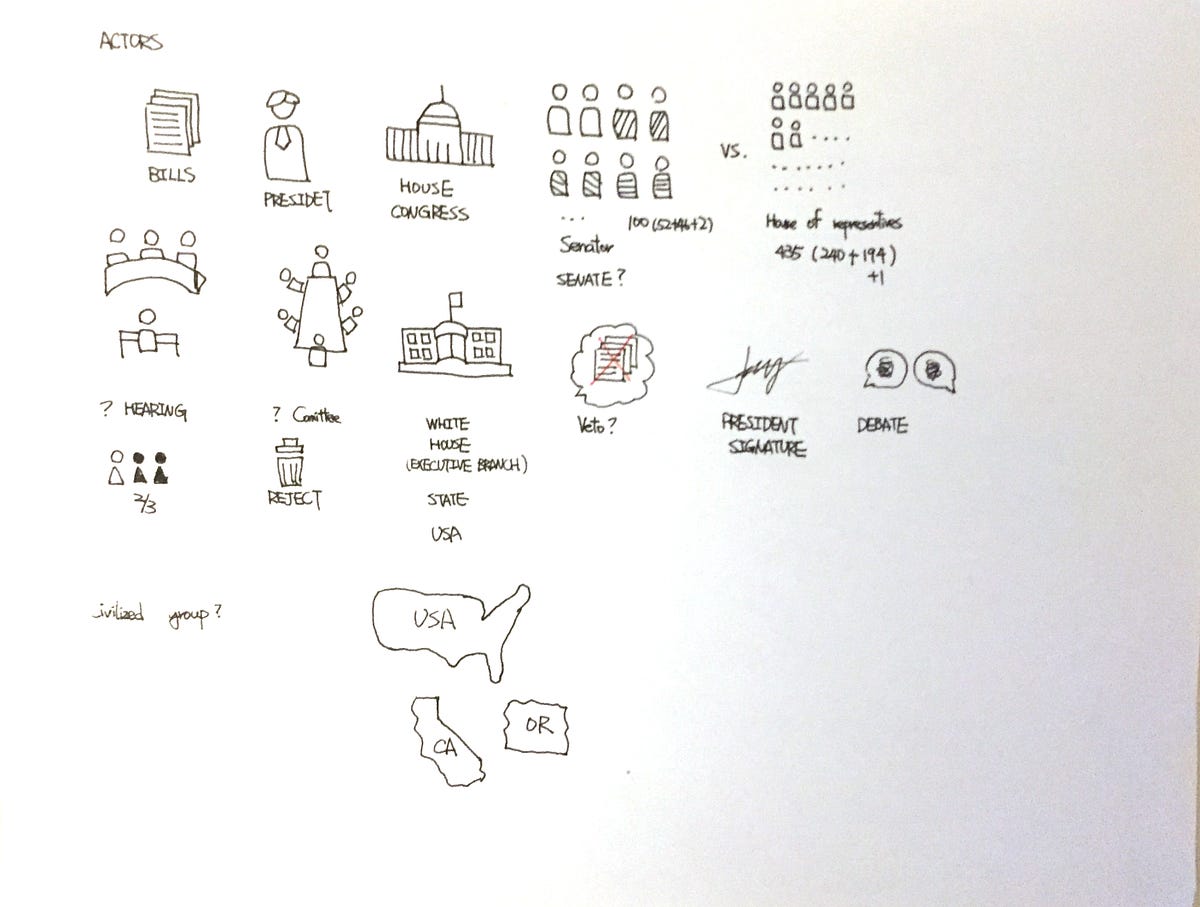 ACTORS
BILLS
PRESIDET
HOUSE
CONGRESS
...
100 (52+46+2)
Senator
SENATE?
VS.
House of representives
435 (240+194)
+1
? HEARING
? Comittee
WHITE
HOUSE
(EXECUTIVE BRANCH)
STATE
USA
Veto?
PRESIDENT
SIGNATURE
DEBATE
2/3
REJECT
ivilized group?
USA
CA
OR